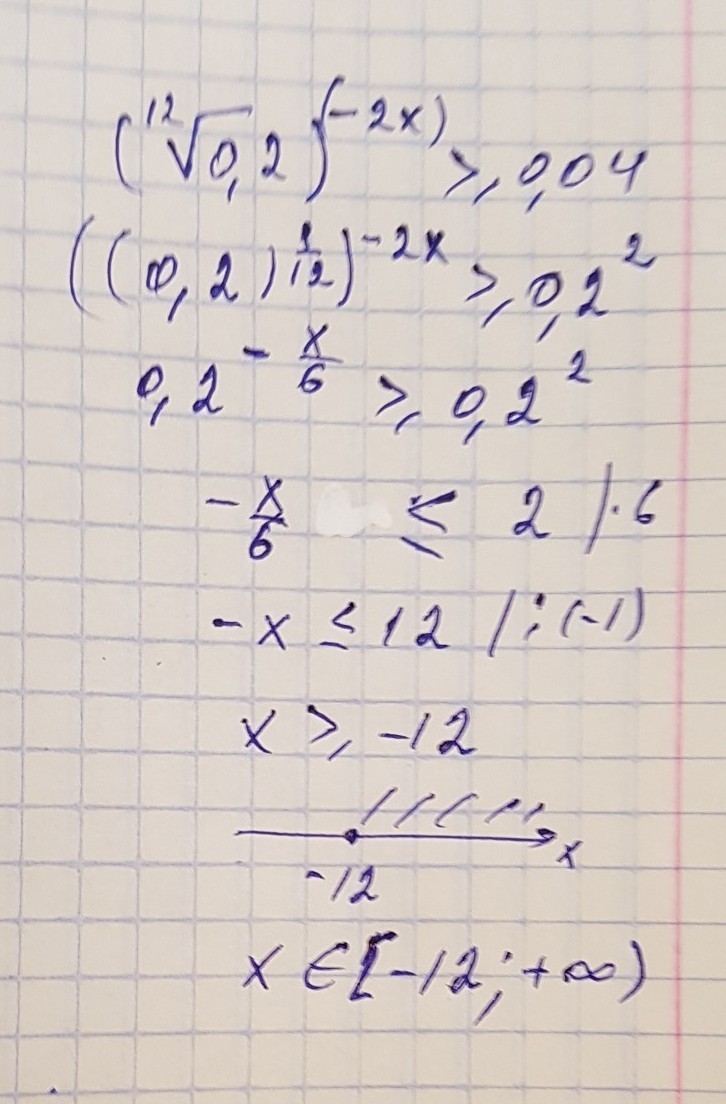 (¹²√0,2)^(-2x) ≥ 0,04
((0,2)^(1/12))^(-2x) ≥ 0,2²
0,2^(-x/6) ≥ 0,2²
-x/6 ≤ 2 /·6
-x ≤ 12 /:(-1)
x ≥ -12
-12 x
x ∈ [-12; +∞)